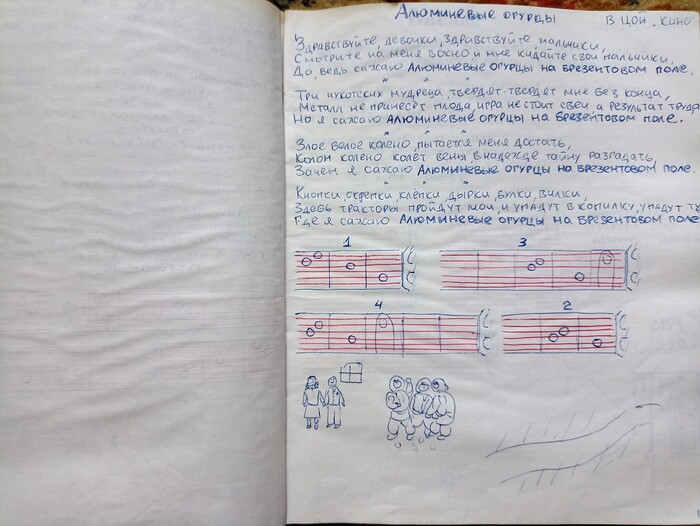 Алюминевые огурцы В Цой. Кино
Здравствуйте, девочки, здравствуйте мальчики,
Смотрите на меня в окно и мне кидайте свои пальчики,
Да, ведь сажаю Алюминевые огурцы на брезентовом поле.
" " "
Три чукотских мудреца, твердят-твердят мне без конца,
Металл не принесёт плода, игра не стоит свеч а результат труда
Но я сажаю Алюминевые огурцы на брезентовом поле.
" " "
Злое белое колено, пытается меня достать,
Колом колено колет вены, в надежде тайну разгадать,
Зачем я сажаю Алюминевые огурцы на брезентовом поле.
" " "
Кнопки, скрепки, клёпки, дырки, булки, вилки,
Здесь тракторы пройдут мои, и упадут в копилку, упадут ту
Где я сажаю Алюминевые огурцы на брезентовом поле
1 3
4 2